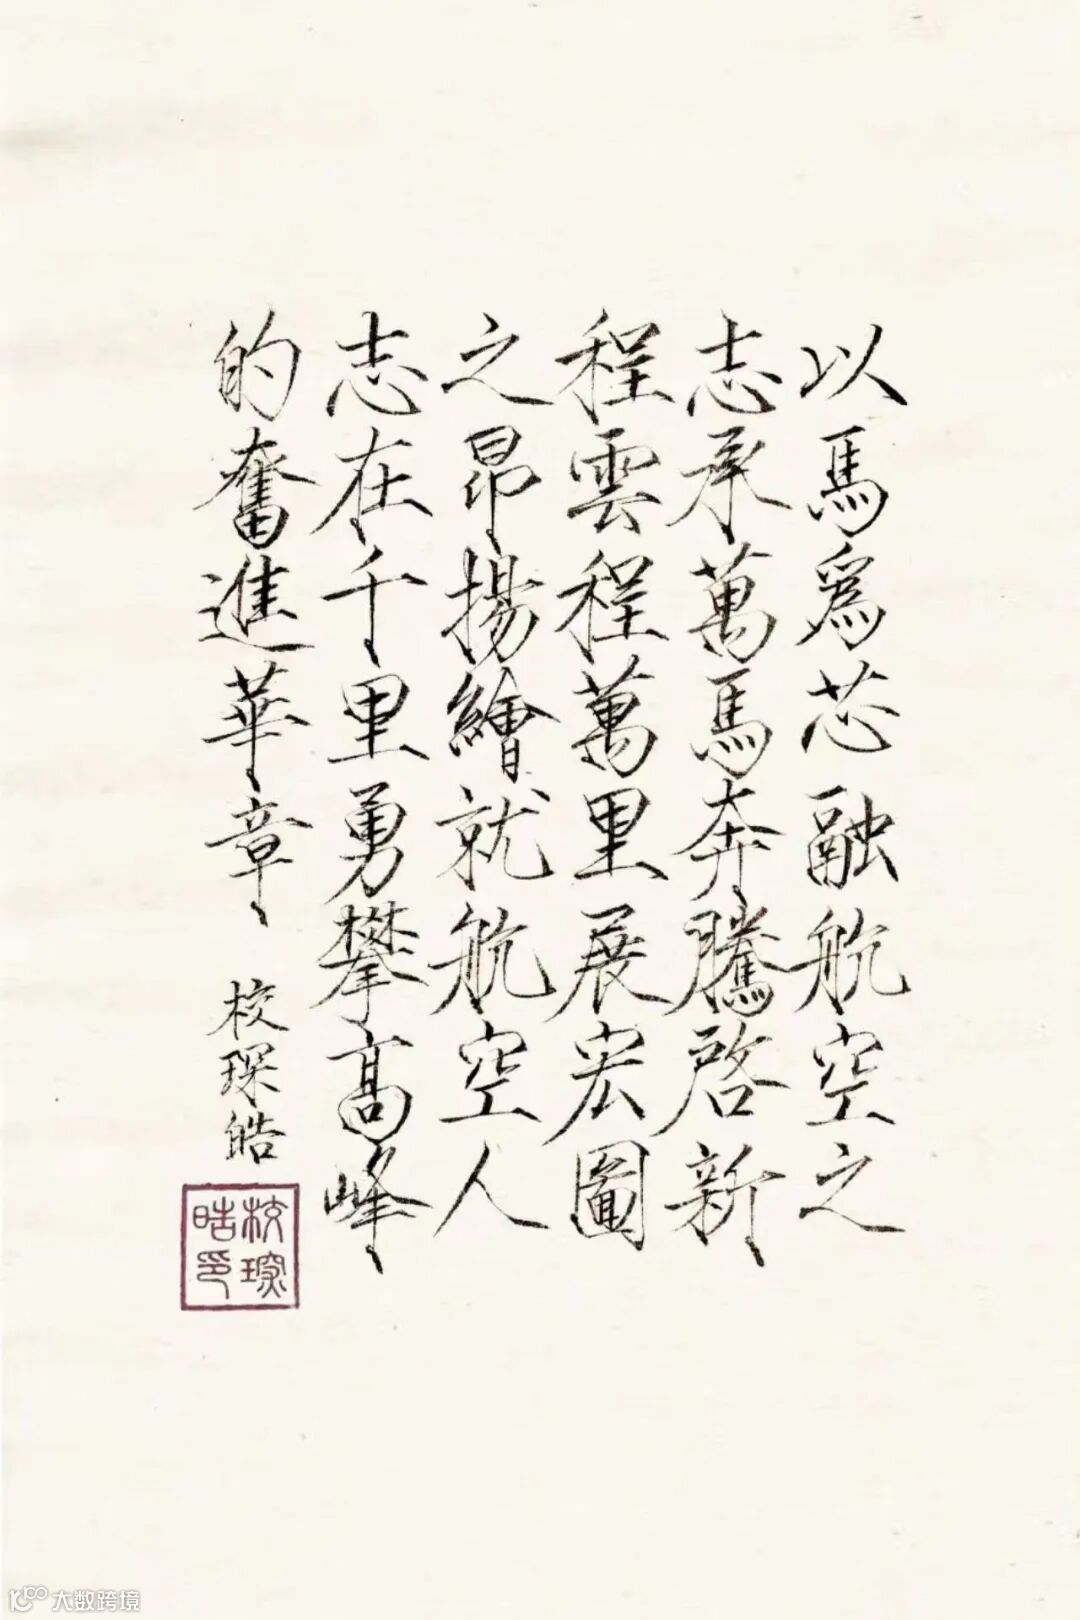 以馬爲芯融航空之
志承萬馬奔騰啓新
程雲程萬里展宏圖
之昂揚繪就航空人
志在千里勇攀高峰
的奮進華章
校琛皓
校琛
皓印
大数跨境